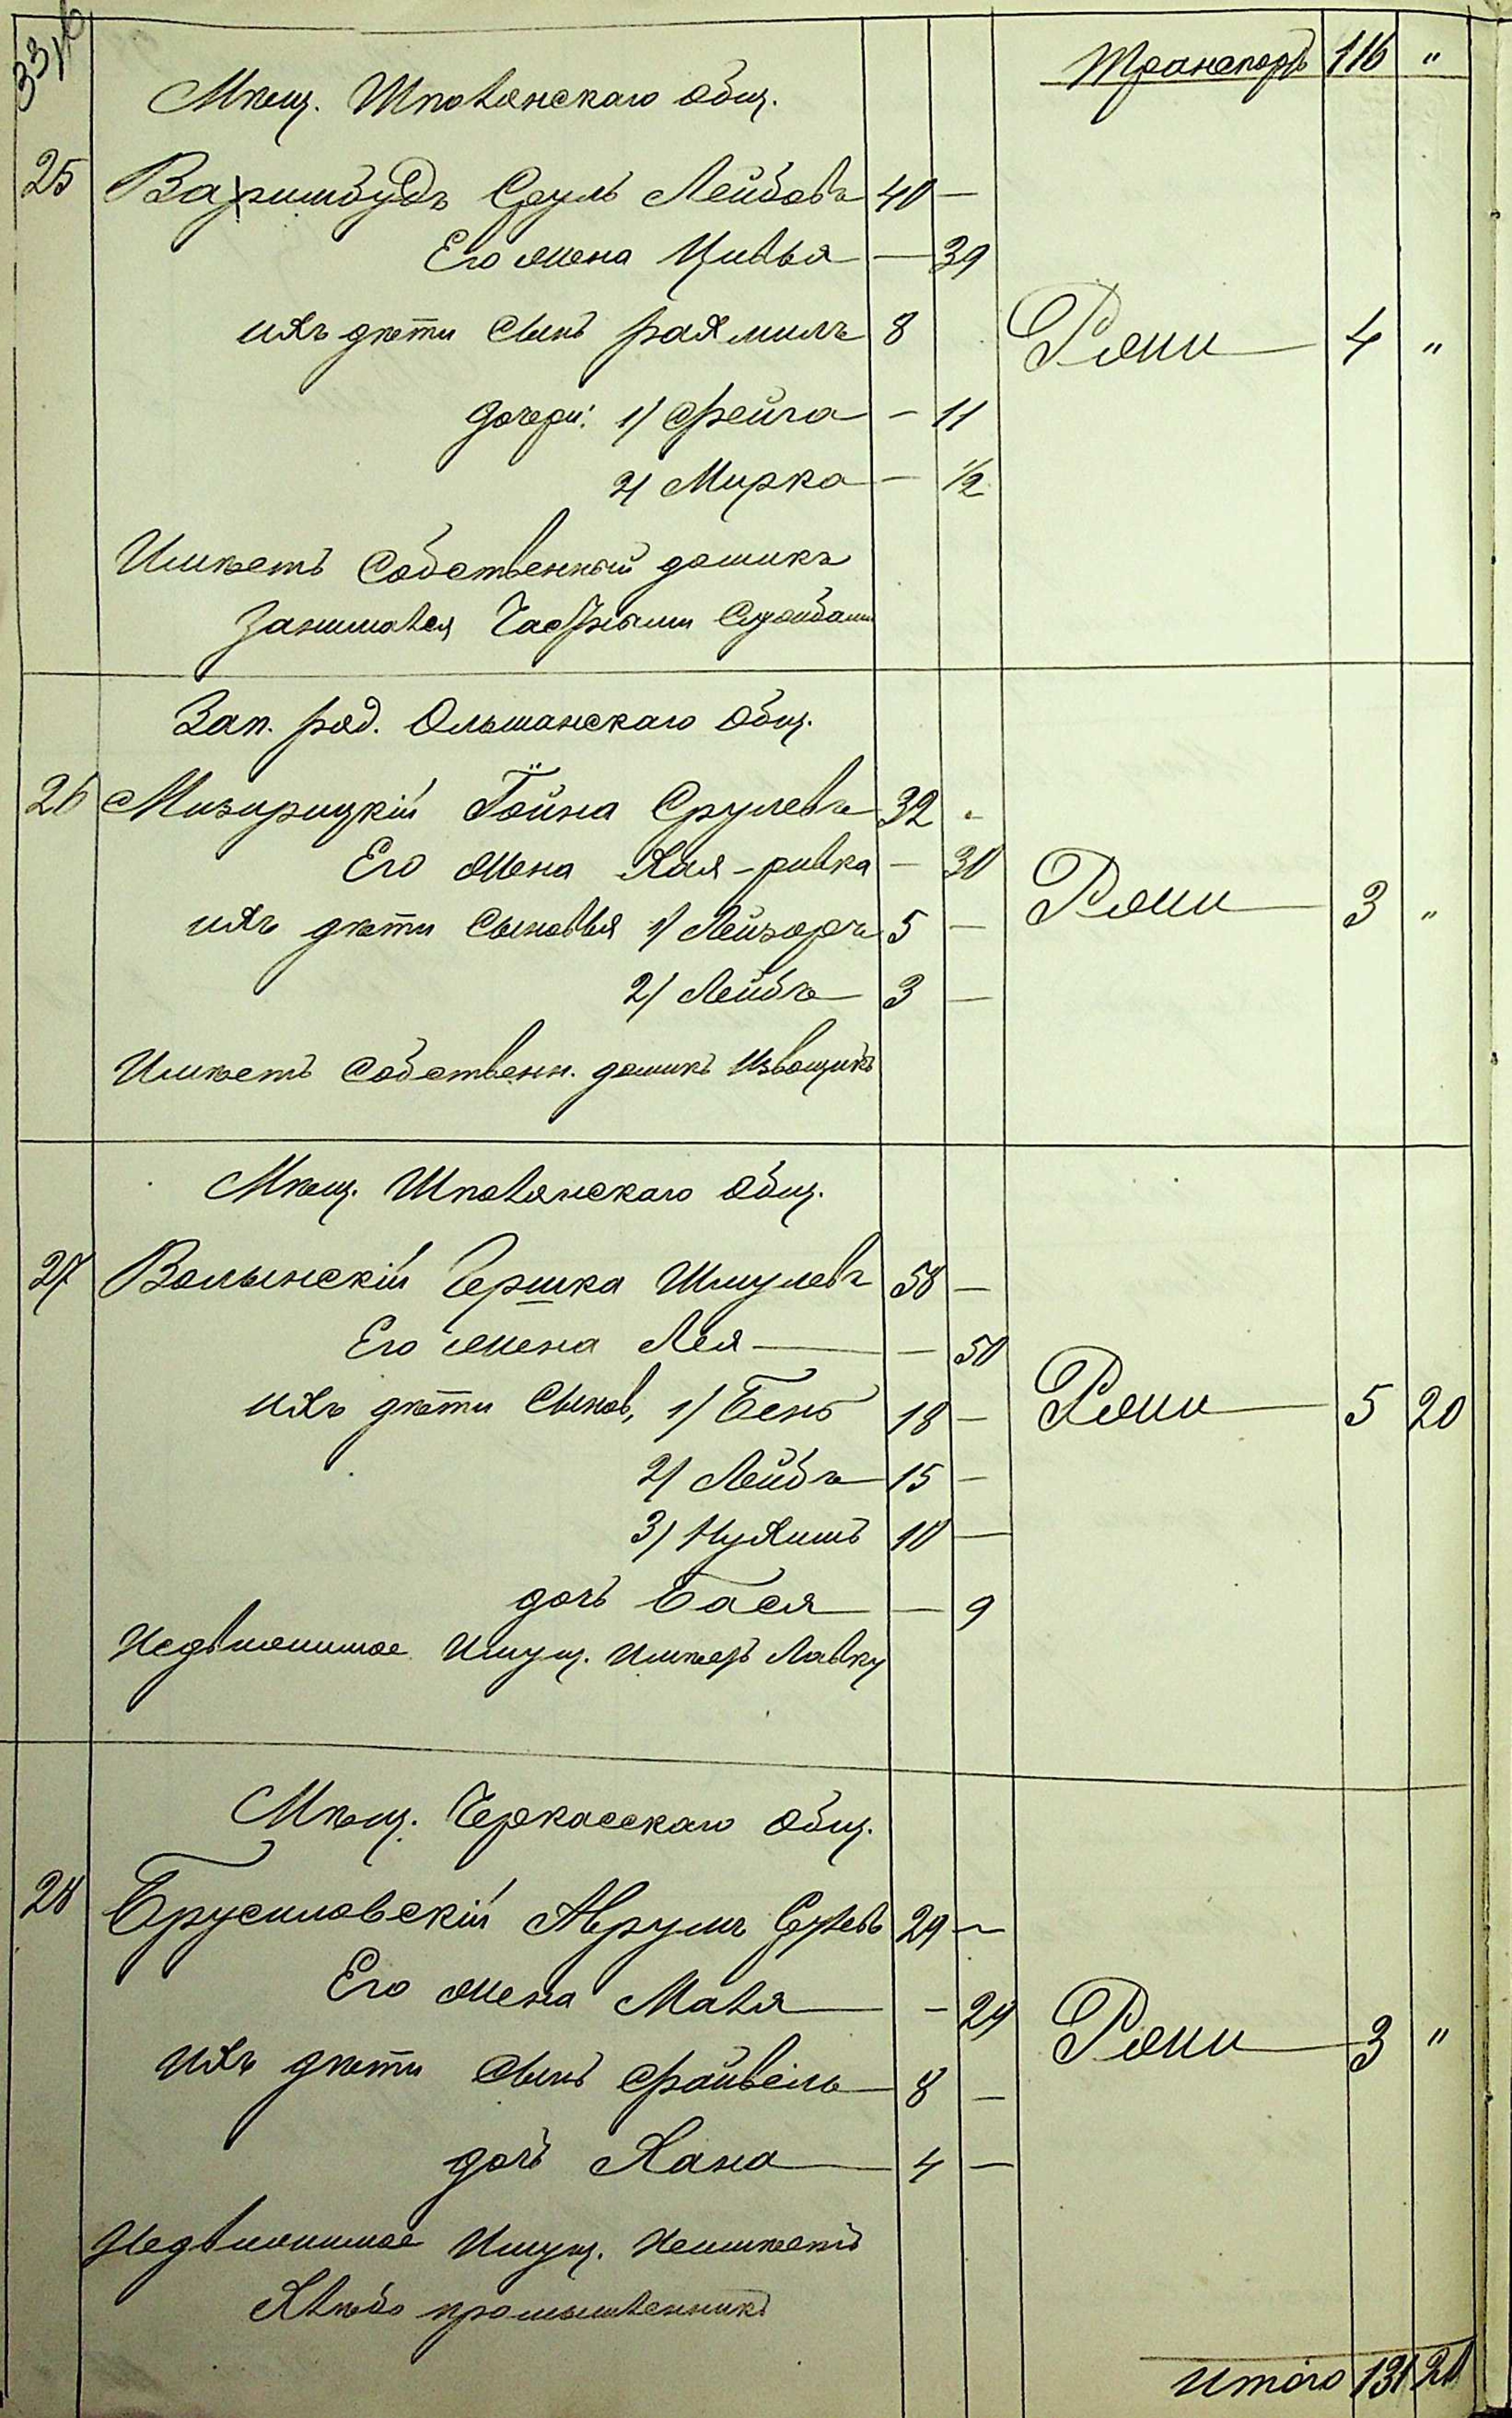 Транспортъ 116 "
Мѣщ. Шполянскаго общ.
25 Варшбудъ Сруль Лейбовъ 40 —
Его жена Цивья — 39
ихъ дѣти сынъ Рахмилъ 8
Ржищ 4 "
дочери: 1) Фейга — 11
2) Мирка — 1/2
Имѣетъ собственный домикъ
Занимался частными службами
Зап. ряд. Ольшанскаго общ.
26 Мизирицкій Гойна Срулевъ 32 -
Его жена Хая-ривка — 30
ихъ дѣти сыновья 1) Лейзоръ 5 —
3 "
2) Лейбъ 3 —
Имѣетъ собственн. домикъ извощикъ
Мѣщ. Шполянскаго общ.
27 Волынскій Гершка Шмулевъ 58 —
Его жена Лея — 50
ихъ дѣти сынов, 1) Бень 18 —
5 20
2) Лейбъ 15 —
3) Нухимъ 10 —
дочь Бася — 9
Недвижимое имущ. имѣетъ лавку
Мѣщ. Черкасскаго общ.
28 Брусиловскій Аврумъ 29 —
Его жена Маля — 29
3 "
ихъ дѣти сынъ Файвель 8 —
дочь Хана 4 —
Недвижимое имущ. неимѣетъ
Хлѣбо промышленникъ
Итого 131 20